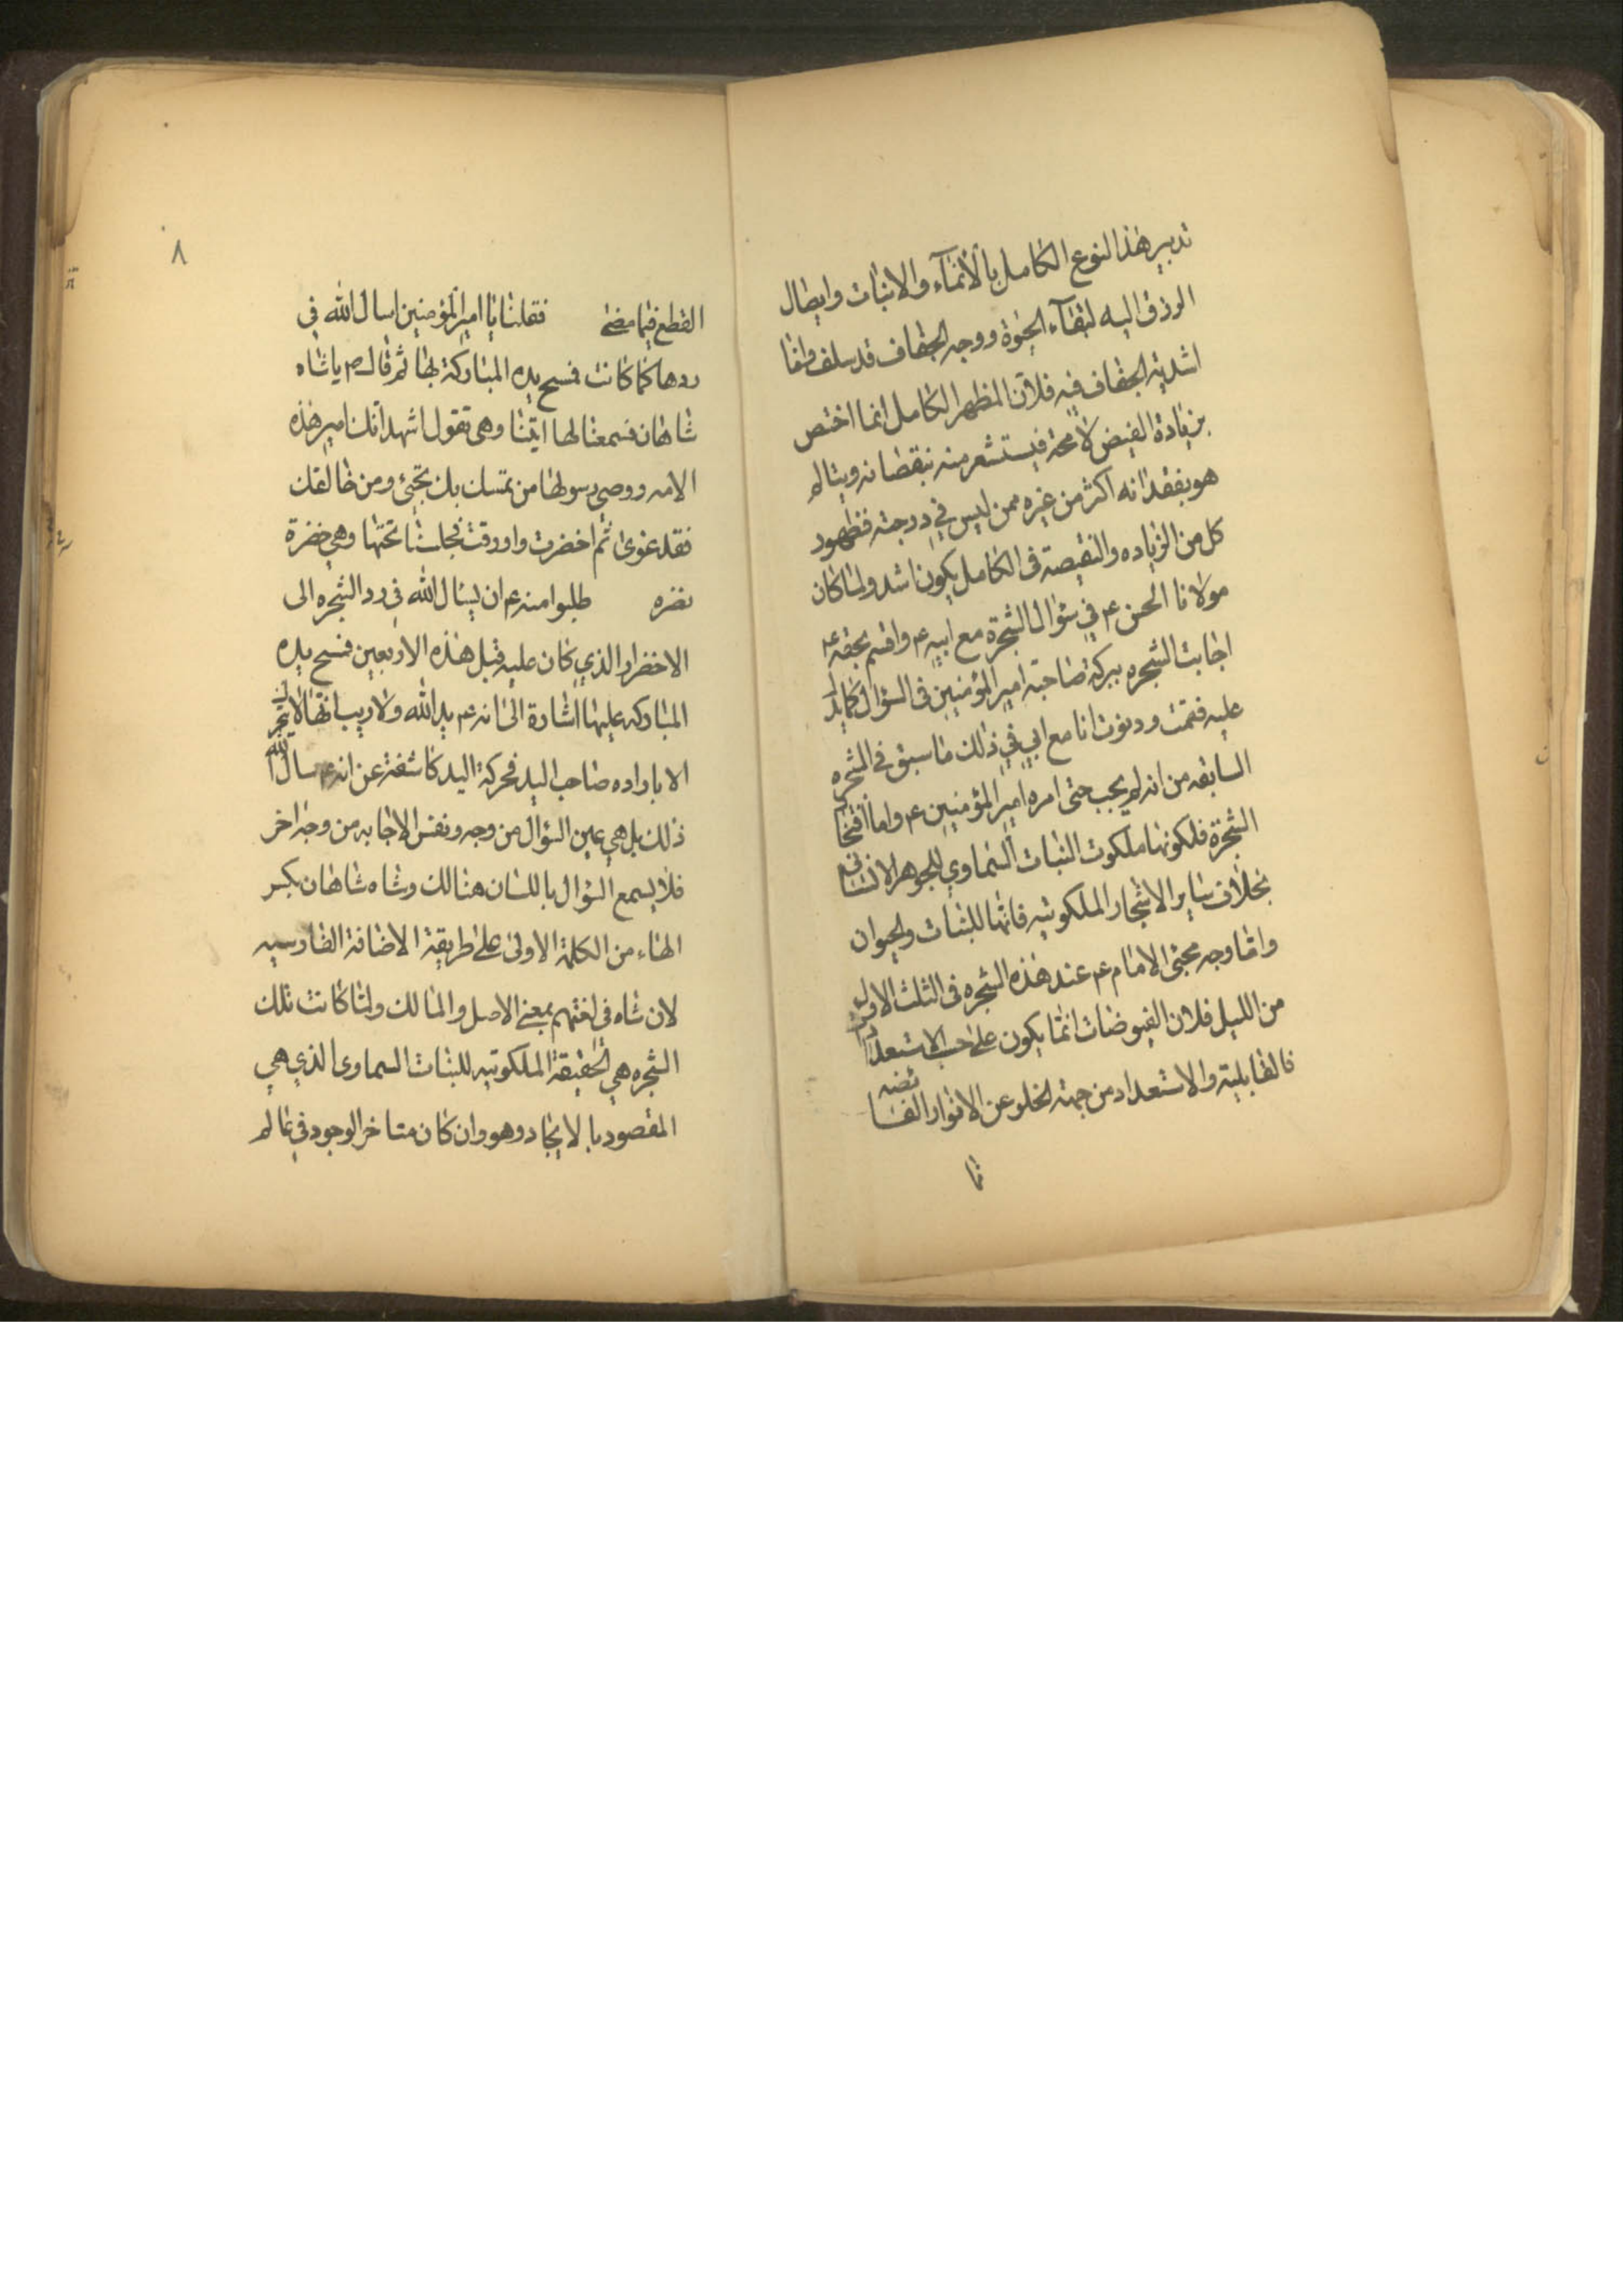 تدبير هذا النوع الكامل بالأنمآء والاثبات وايصال
الرزق اليه لبقآء الحيوة ووجه الجفاف قد سلف واما
اشدية الجفاف فيه فلأن المظهر الكامل انما اختص
بزيادة الفيض لا محة فيستشعر منه بنقصانه ويتالم
هو بفقدانه اكثر من غيره ممن ليس في درجته فظهور
كل من الزياده والنقيصة فى الكامل يكون اشد ولما كان
مولانا الحسن ع م في سؤال الشجرة مع ابيه ع م واقسم بحقه ع م
اجابت الشجره ببركة صاحبة امير المؤمنين فى السؤال كما يدل
عليه فقمت ودنوت انا مع ابي في ذلك ما سبق في الشجره
السابقه من انه لم يجب حتى امره امير المؤمنين ع م واما
الشجرة فلكونها ملكوت النبات السماوي للجوهر الانسانى
بخلاف ساير الاشجار الملكوتيه فانها للنبات والحيوان
واما وجه مجئ الامام ع م عند هذه الشجره فى الثلث الاول
من الليل فلان الفيوضات انما يكون على حسب الاستعداد
فالقابلية والاستعداد من جهة الخلو عن الانوار الفائضه
فا
٨
القطع فيما مضى فقلنا يا امير المؤمنين اسال الله في
ردها كما كانت فمسح يده المباركة بها ثم قال ع م يا شاه
شاهان فسمعنا لها انينا وهى تقول اشهد انك امير هذه
الامه ووصى رسولها من تمسك بك نجئ ومن خالفك
فقد غوى ثم اخضرت واورقت فجلسنا تحتها وهي خضرة
نضره طلبوا منه ع م ان يسال الله في رد الشجره الى
الاخضرار الذي كان عليه قبل هذه الاربعين فمسح يده
المباركه عليها اشارة الى انه ع م يد الله ولا ريب انها لا تتحرك
الا باراده صاحب اليد فحركة اليد كاشفة عن انه ع م سال الله
ذلك بل هي عين السؤال من وجه ونفس الاجابه من وجه اخر
فلا يسمع السؤال باللسان هنالك وشاه شاهان بكسر
الهاء من الكلمة الاولى على طريقة الاضافة الفارسيه
لان شاه فى لغتهم بمعنى الاصل والمالك ولما كانت تلك
الشجره هي الحقيقة الملكوتيه للنبات السماوى الذي هي
المقصود بالايجاد وهو وان كان متاخر الوجود في عالم